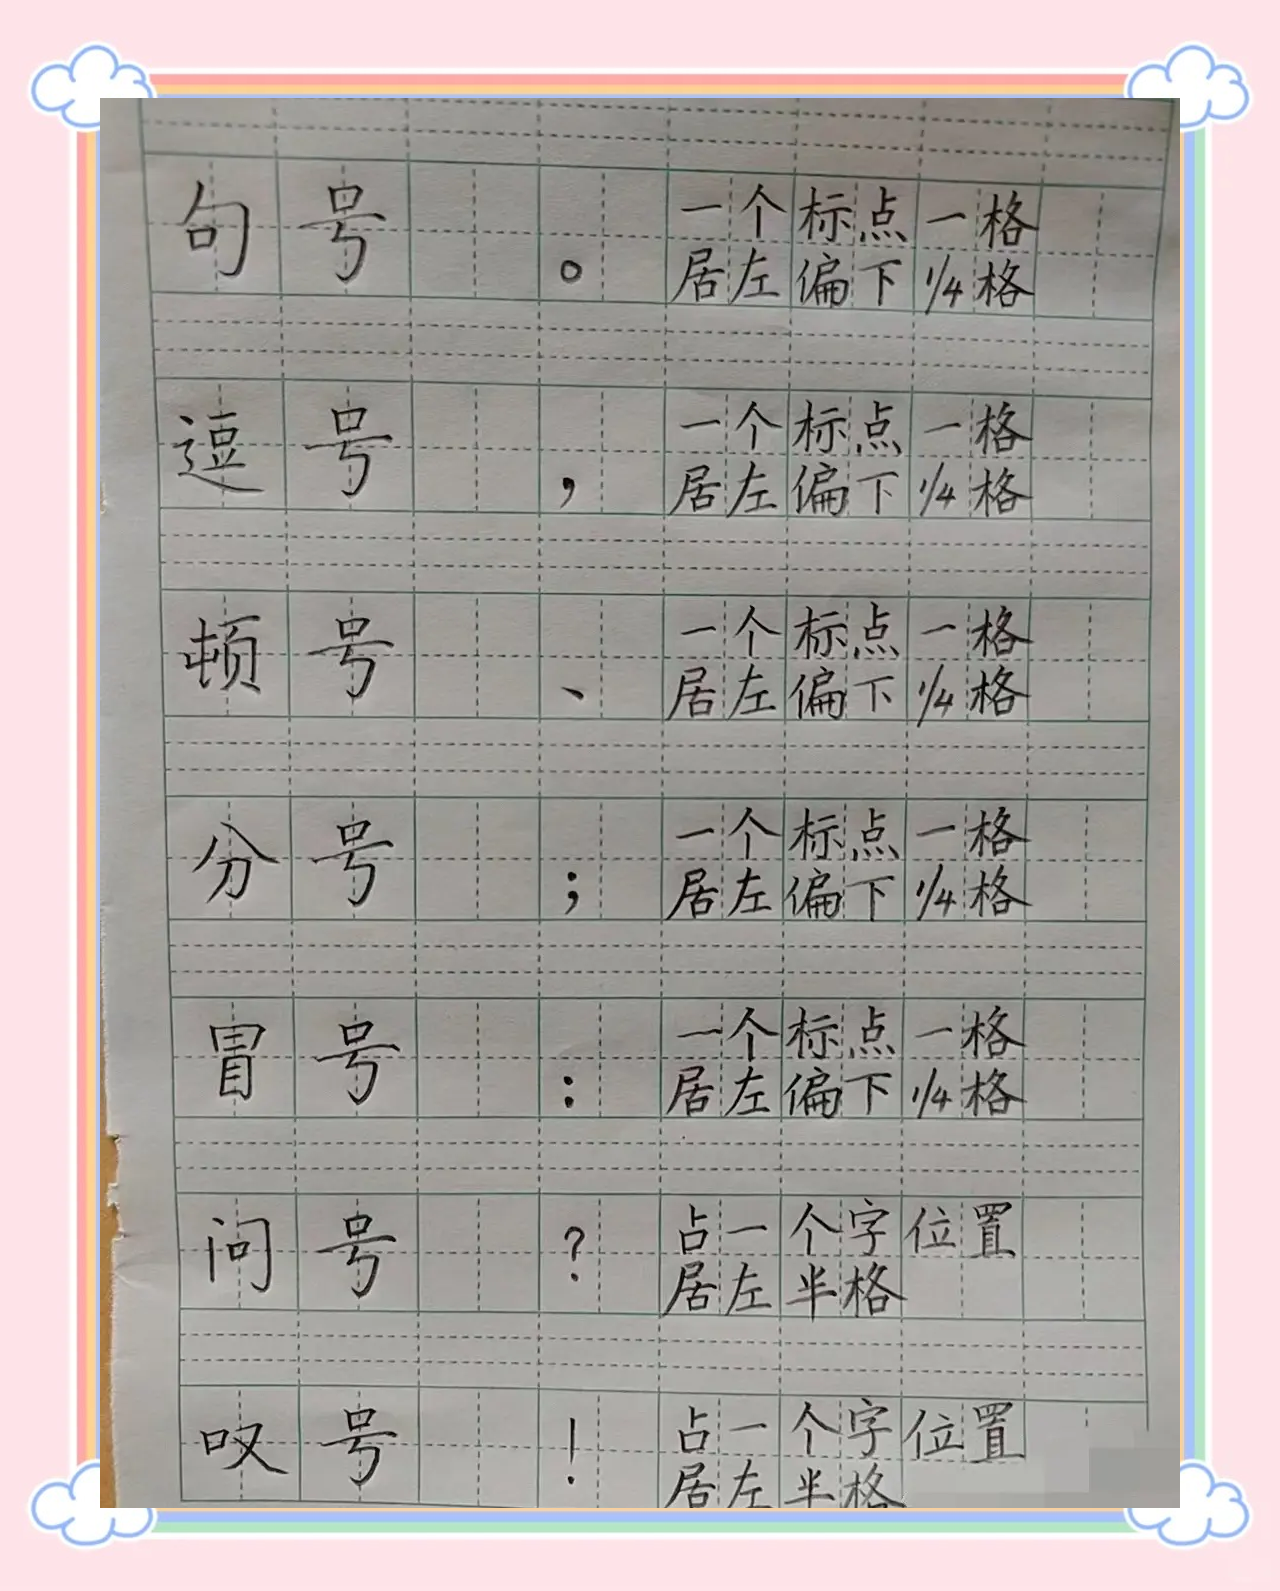 句号 。 一个标点一格
居左偏下1/4格
逗号 , 一个标点一格
居左偏下1/4格
顿号 、 一个标点一格
居左偏下1/4格
分号 ; 一个标点一格
居左偏下1/4格
冒号 : 一个标点一格
居左偏下1/4格
问号 ? 占一个字位置
居左半格
叹号 ! 占一个字位置
居左半格